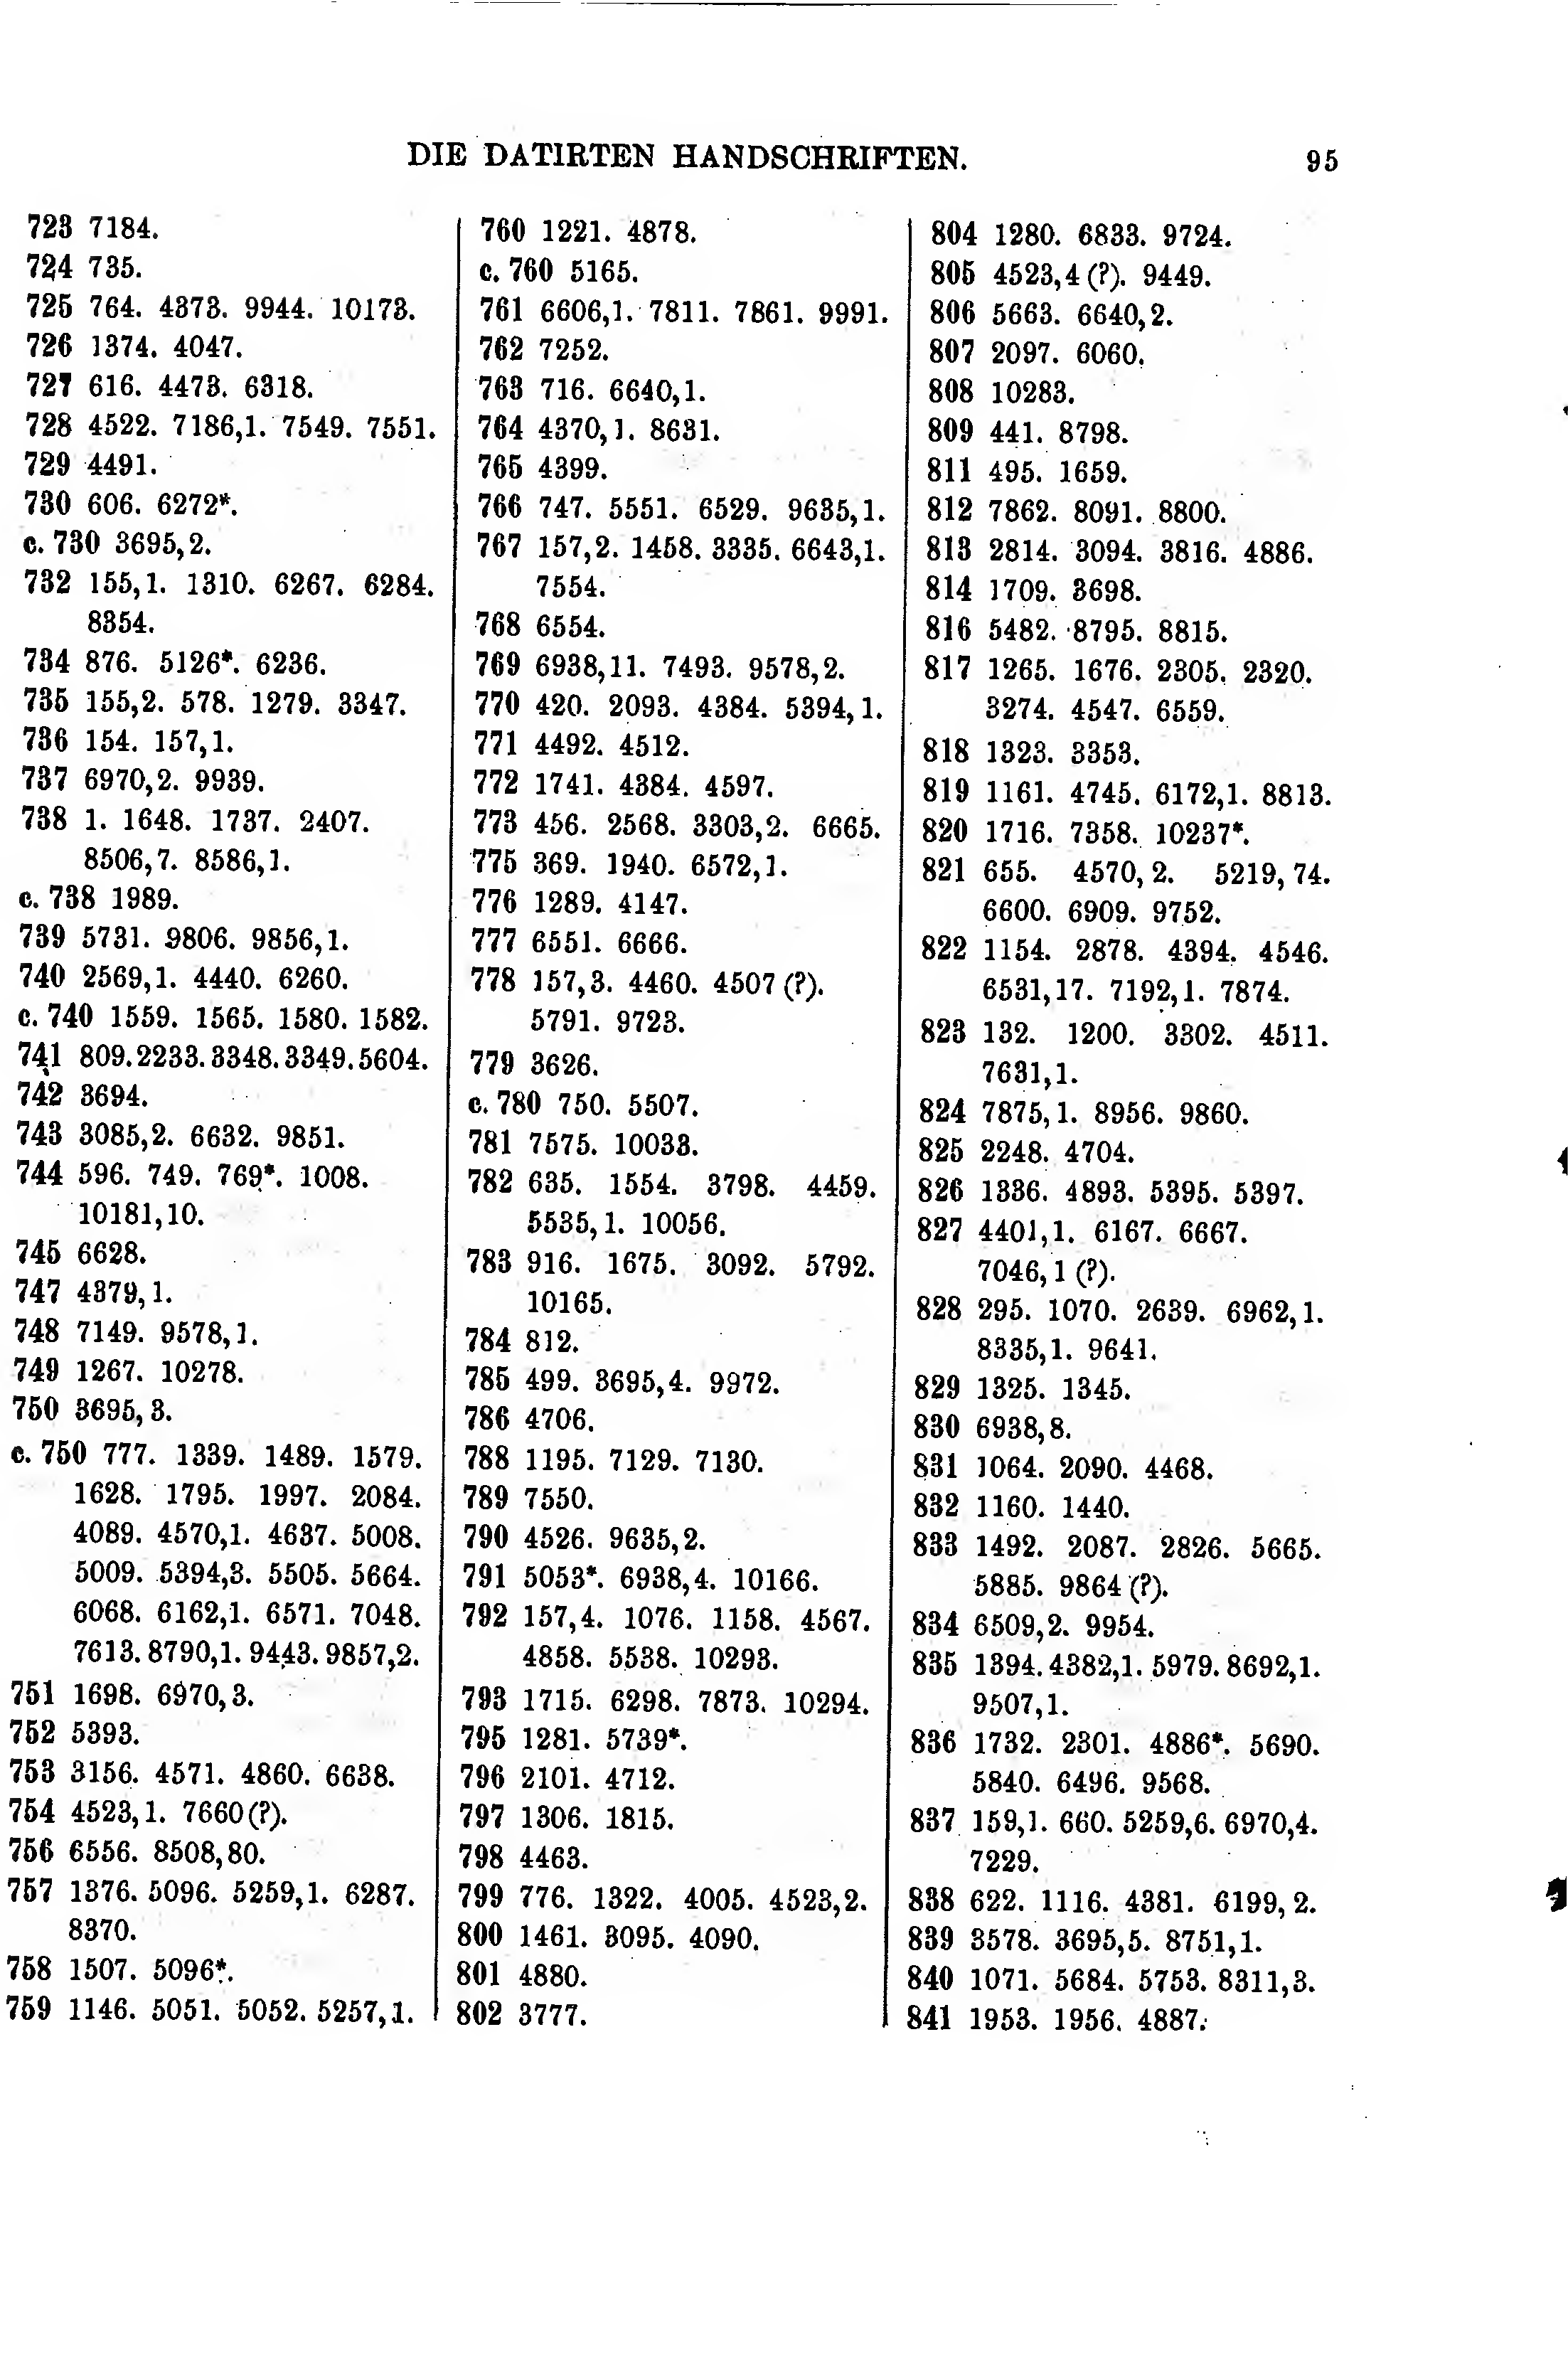 DIE DATIRTEN HANDSCHRIFTEN. 95
723 7184.
724 735.
725 764. 4373. 9944. 10173.
726 1374. 4047.
727 616. 4473. 6318.
728 4522. 7186,1. 7549. 7551.
729 4491.
730 606. 6272*.
c. 730 3695,2.
732 155,1. 1310. 6267. 6284.
8354.
734 876. 5126*. 6236.
735 155,2. 578. 1279. 3347.
736 154. 157,1.
737 6970,2. 9939.
738 1. 1648. 1737. 2407.
8506,7. 8586,1.
c. 738 1989.
739 5731. 9806. 9856,1.
740 2569,1. 4440. 6260.
c. 740 1559. 1565. 1580. 1582.
741 809. 2233. 3348. 3349. 5604.
742 3694.
743 3085,2. 6632. 9851.
744 596. 749. 769*. 1008.
10181,10.
745 6628.
747 4379,1.
748 7149. 9578,1.
749 1267. 10278.
750 3695,3.
c. 750 777. 1339. 1489. 1579.
1628. 1795. 1997. 2084.
4089. 4570,1. 4637. 5008.
5009. 5394,3. 5505. 5664.
6068. 6162,1. 6571. 7048.
7613. 8790,1. 9443. 9857,2.
751 1698. 6970,3.
752 5393.
753 3156. 4571. 4860. 6638.
754 4523,1. 7660 (?).
756 6556. 8508,80.
757 1376. 5096. 5259,1. 6287.
8370.
758 1507. 5096*.
759 1146. 5051. 5052. 5257,1.
760 1221. 4878.
c. 760 5165.
761 6606,1. 7811. 7861. 9991.
762 7252.
763 716. 6640,1.
764 4370,1. 8631.
765 4399.
766 747. 5551. 6529. 9635,1.
767 157,2. 1458. 3335. 6643,1.
7554.
768 6554.
769 6938,11. 7493. 9578,2.
770 420. 2093. 4384. 5394,1.
771 4492. 4512.
772 1741. 4384. 4597.
773 456. 2568. 3303,2. 6665.
775 369. 1940. 6572,1.
776 1289. 4147.
777 6551. 6666.
778 157,3. 4460. 4507 (?).
5791. 9723.
779 3626.
c. 780 750. 5507.
781 7575. 10033.
782 635. 1554. 3798. 4459.
5535,1. 10056.
783 916. 1675. 3092. 5792.
10165.
784 812.
785 499. 3695,4. 9972.
786 4706.
788 1195. 7129. 7130.
789 7550.
790 4526. 9635,2.
791 5053*. 6938,4. 10166.
792 157,4. 1076. 1158. 4567.
4858. 5538. 10293.
793 1715. 6298. 7873. 10294.
795 1281. 5739*.
796 2101. 4712.
797 1306. 1815.
798 4463.
799 776. 1322. 4005. 4523,2.
800 1461. 3095. 4090.
801 4880.
802 3777.
804 1280. 6833. 9724.
805 4523,4 (?). 9449.
806 5663. 6640,2.
807 2097. 6060.
808 10283.
809 441. 8798.
811 495. 1659.
812 7862. 8091. 8800.
813 2814. 3094. 3816. 4886.
814 1709. 3698.
816 5482. 8795. 8815.
817 1265. 1676. 2305. 2320.
3274. 4547. 6559.
818 1323. 3353.
819 1161. 4745. 6172,1. 8813.
820 1716. 7358. 10237*.
821 655. 4570,2. 5219,74.
6600. 6909. 9752.
822 1154. 2878. 4394. 4546.
6531,17. 7192,1. 7874.
823 132. 1200. 3302. 4511.
7631,1.
824 7875,1. 8956. 9860.
825 2248. 4704.
826 1336. 4893. 5395. 5397.
827 4401,1. 6167. 6667.
7046,1 (?).
828 295. 1070. 2639. 6962,1.
8335,1. 9641.
829 1325. 1345.
830 6938,8.
831 1064. 2090. 4468.
832 1160. 1440.
833 1492. 2087. 2826. 5665.
5885. 9864 (?).
834 6509,2. 9954.
835 1394. 4382,1. 5979. 8692,1.
9507,1.
836 1732. 2301. 4886*. 5690.
5840. 6496. 9568.
837 159,1. 660. 5259,6. 6970,4.
7229.
838 622. 1116. 4381. 6199,2.
839 3578. 3695,5. 8751,1.
840 1071. 5684. 5753. 8311,3.
841 1953. 1956. 4887.